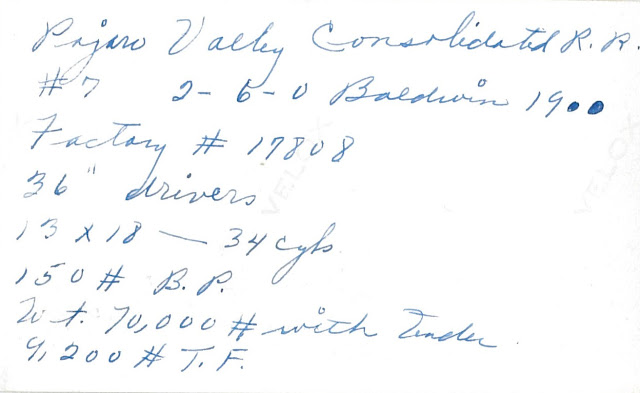 Pajaro Valley Consolidated R. R.
#7 2-6-0 Baldwin 1900
Factory # 17808
36" drivers
13 x 18 — 34 cyls
150 # B. P.
Wt. 70,000 # with Tender
9,200 # T. F.
VELOX
VELOX